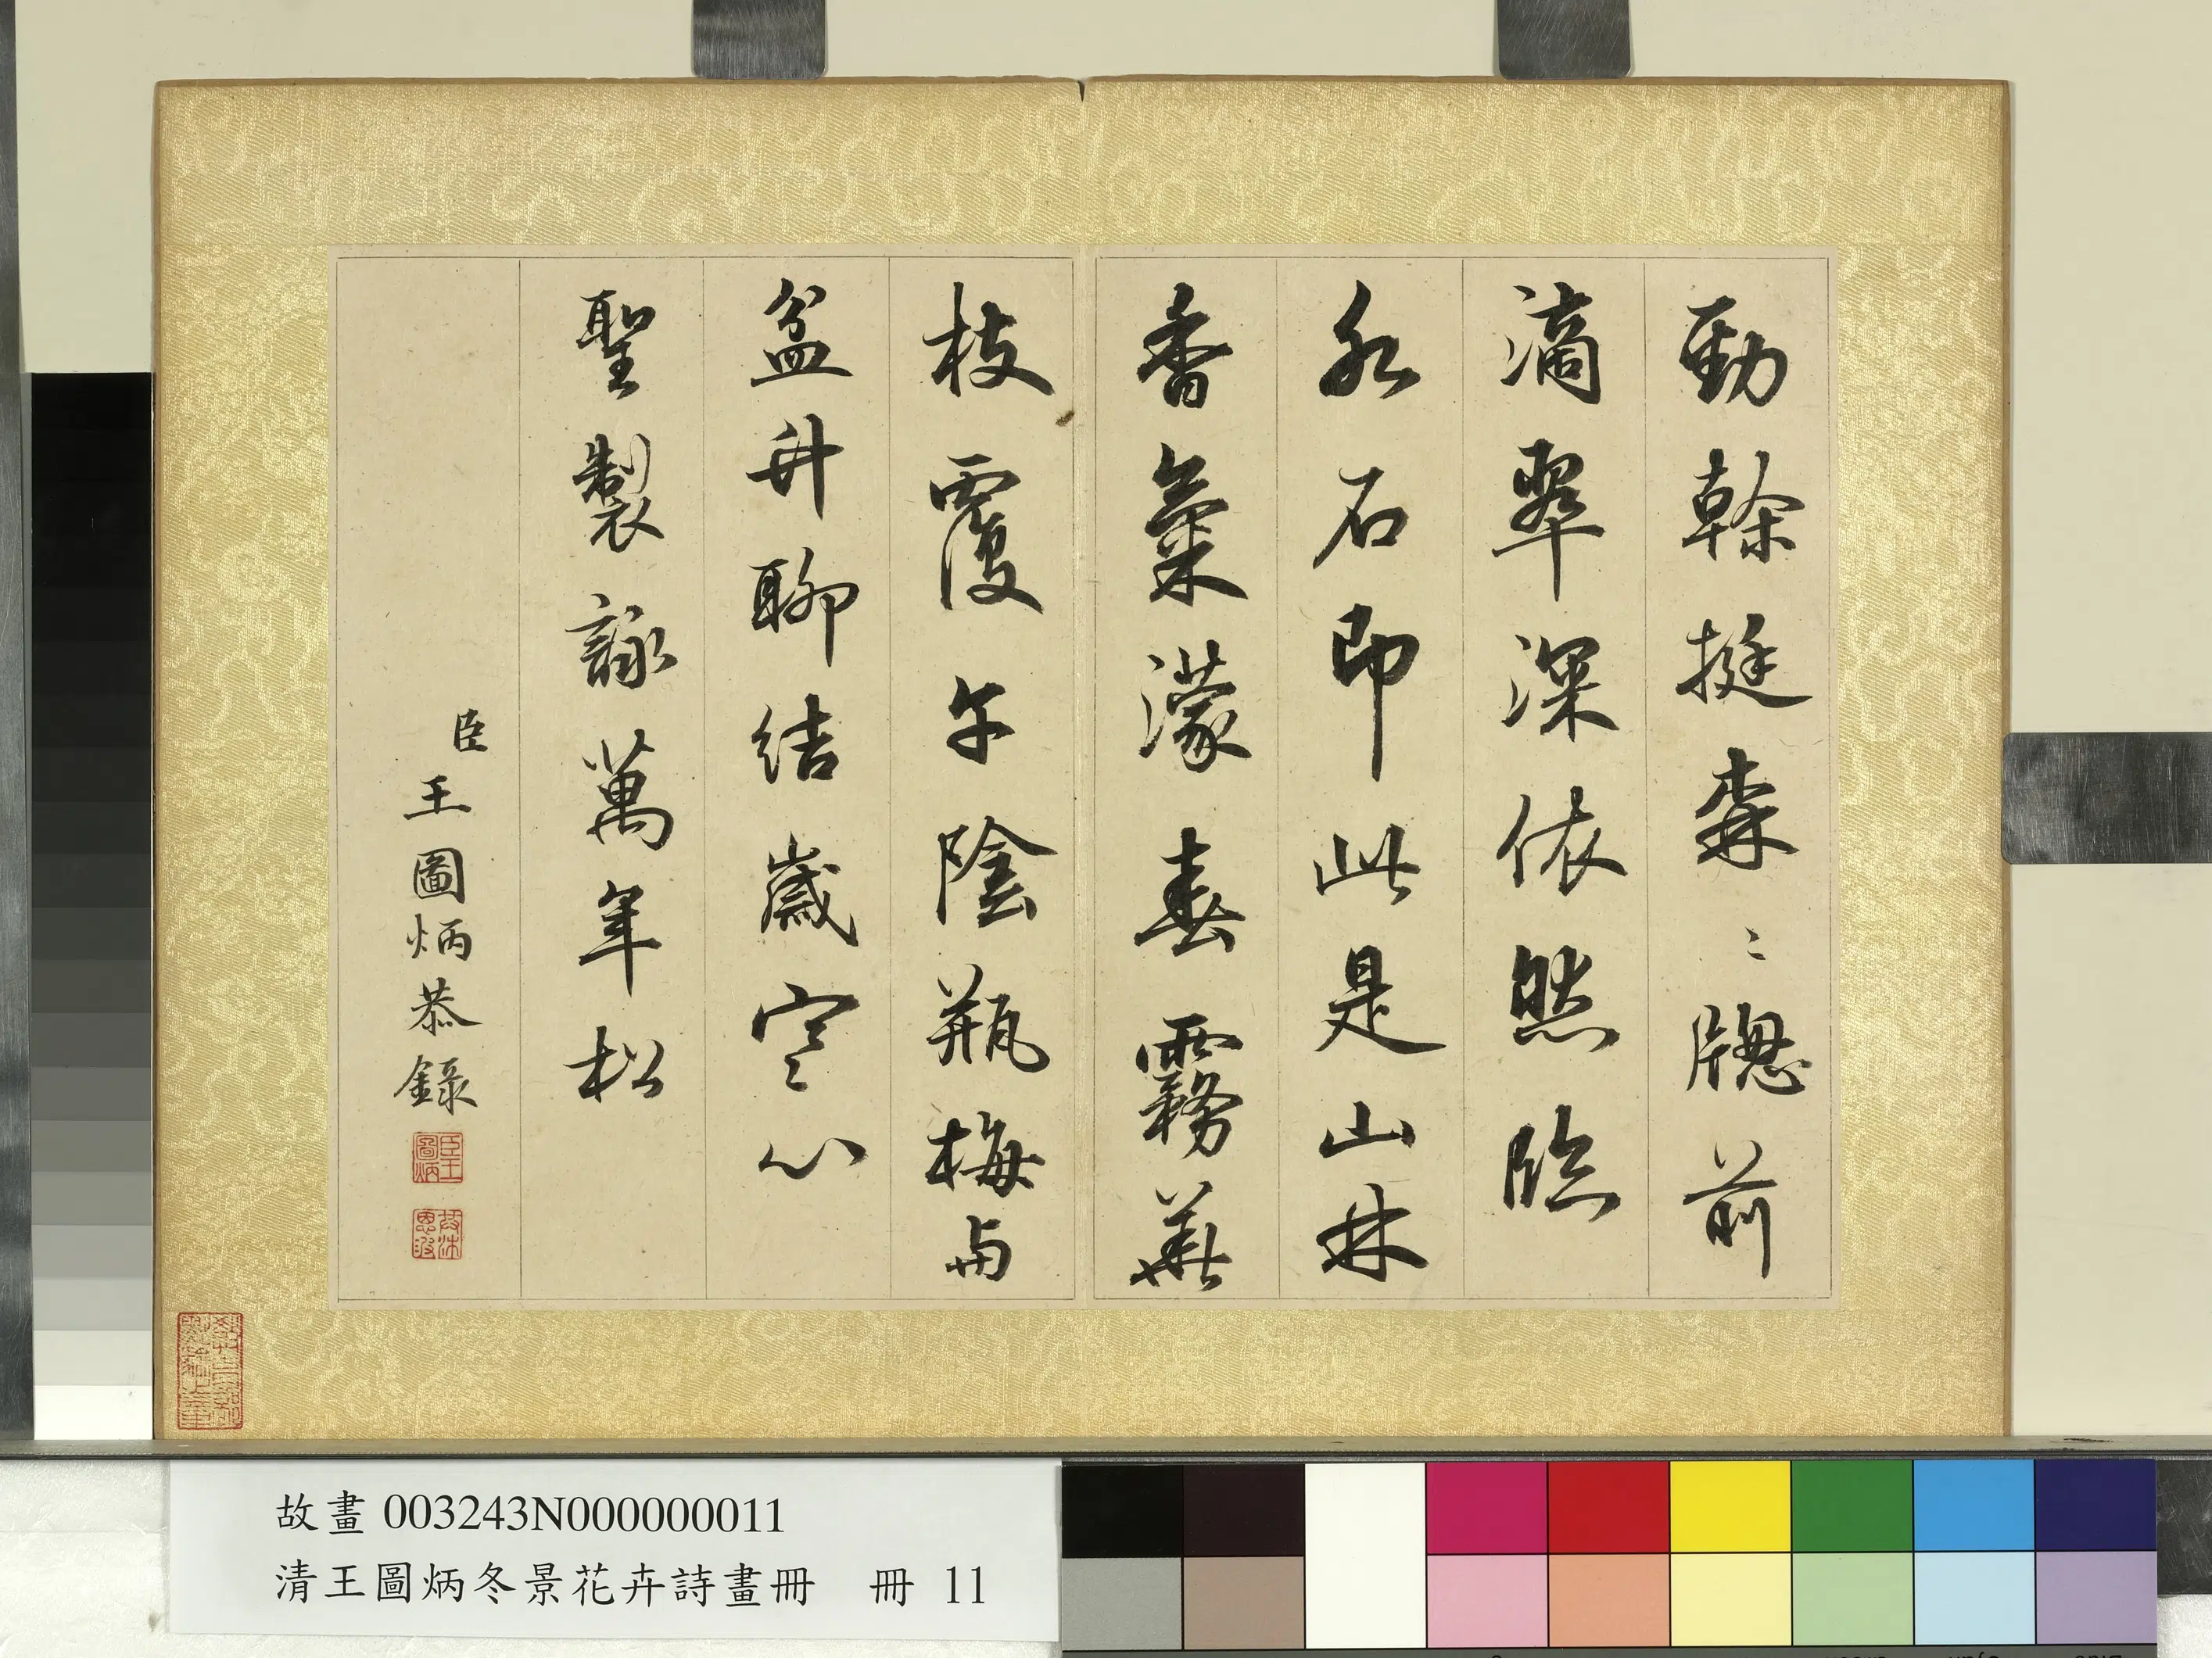 勁榦挺森〻牕前
滴翠深依然臨
水石即此是山林
香氣濛春霧華
枝覆午陰瓶梅与
盆卉聊結歲寒心
聖製詠萬年松
臣王圖炳恭錄
臣王圖炳
故畫 003243N000000011
清王圖炳冬景花卉詩畫冊 冊 11